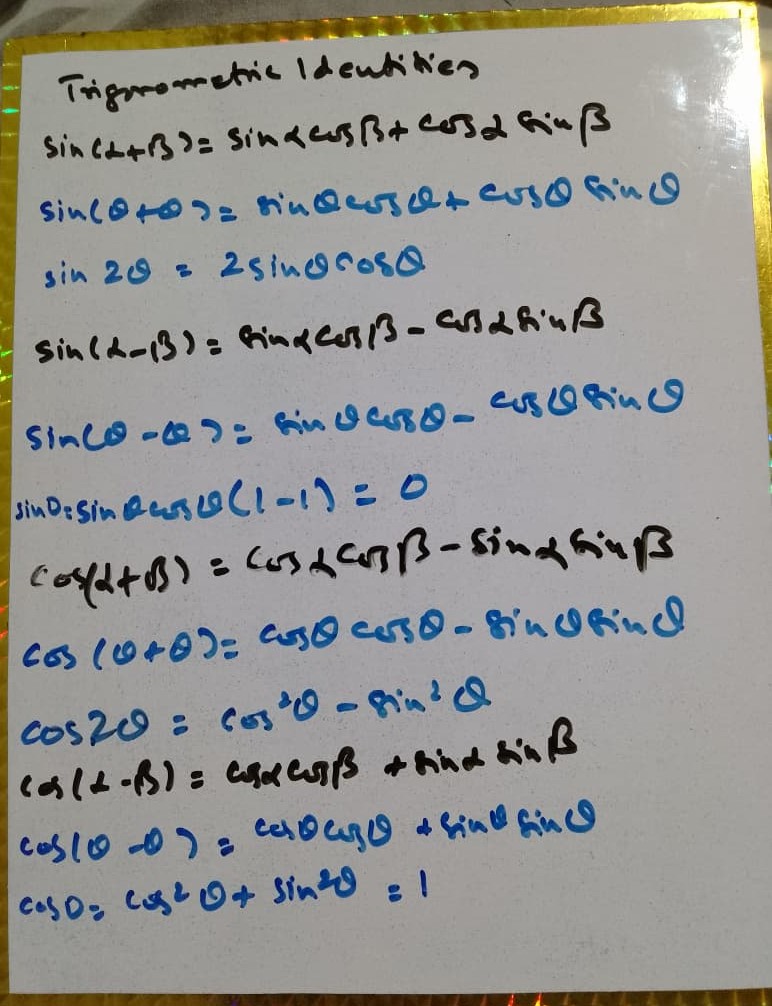 Trignometric Identities
sin(α+β) = sinαcosβ + cosα sinβ
sin(θ+θ) = sinθcosθ + cosθ sinθ
sin 2θ = 2sinθcosθ
sin(α-β) = sinαcosβ - cosα sinβ
sin(θ-θ) = sinθcosθ - cosθ sinθ
sin0 = sinθcosθ(1-1) = 0
cos(α+β) = cosα cosβ - sinα sinβ
cos (θ+θ) = cosθ cosθ - sinθ sinθ
cos2θ = cos²θ - sin²θ
cos(α-β) = cosαcosβ + sinα sinβ
cos(θ-θ) = cosθcosθ + sinθ sinθ
cos0 = cos²θ + sin²θ = 1